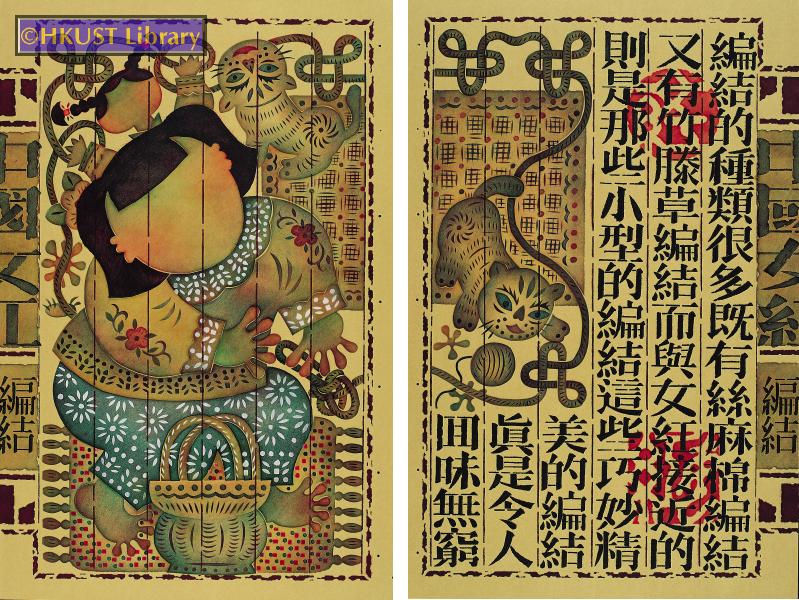 ©HKUST Library
中國女工
編結
編結的種類很多既有絲麻棉編結
又有竹籐草編結而與女紅接近的
則是那些小型的編結這些巧妙精
美的編結
真是令人
回味無窮
中國女紅
編結